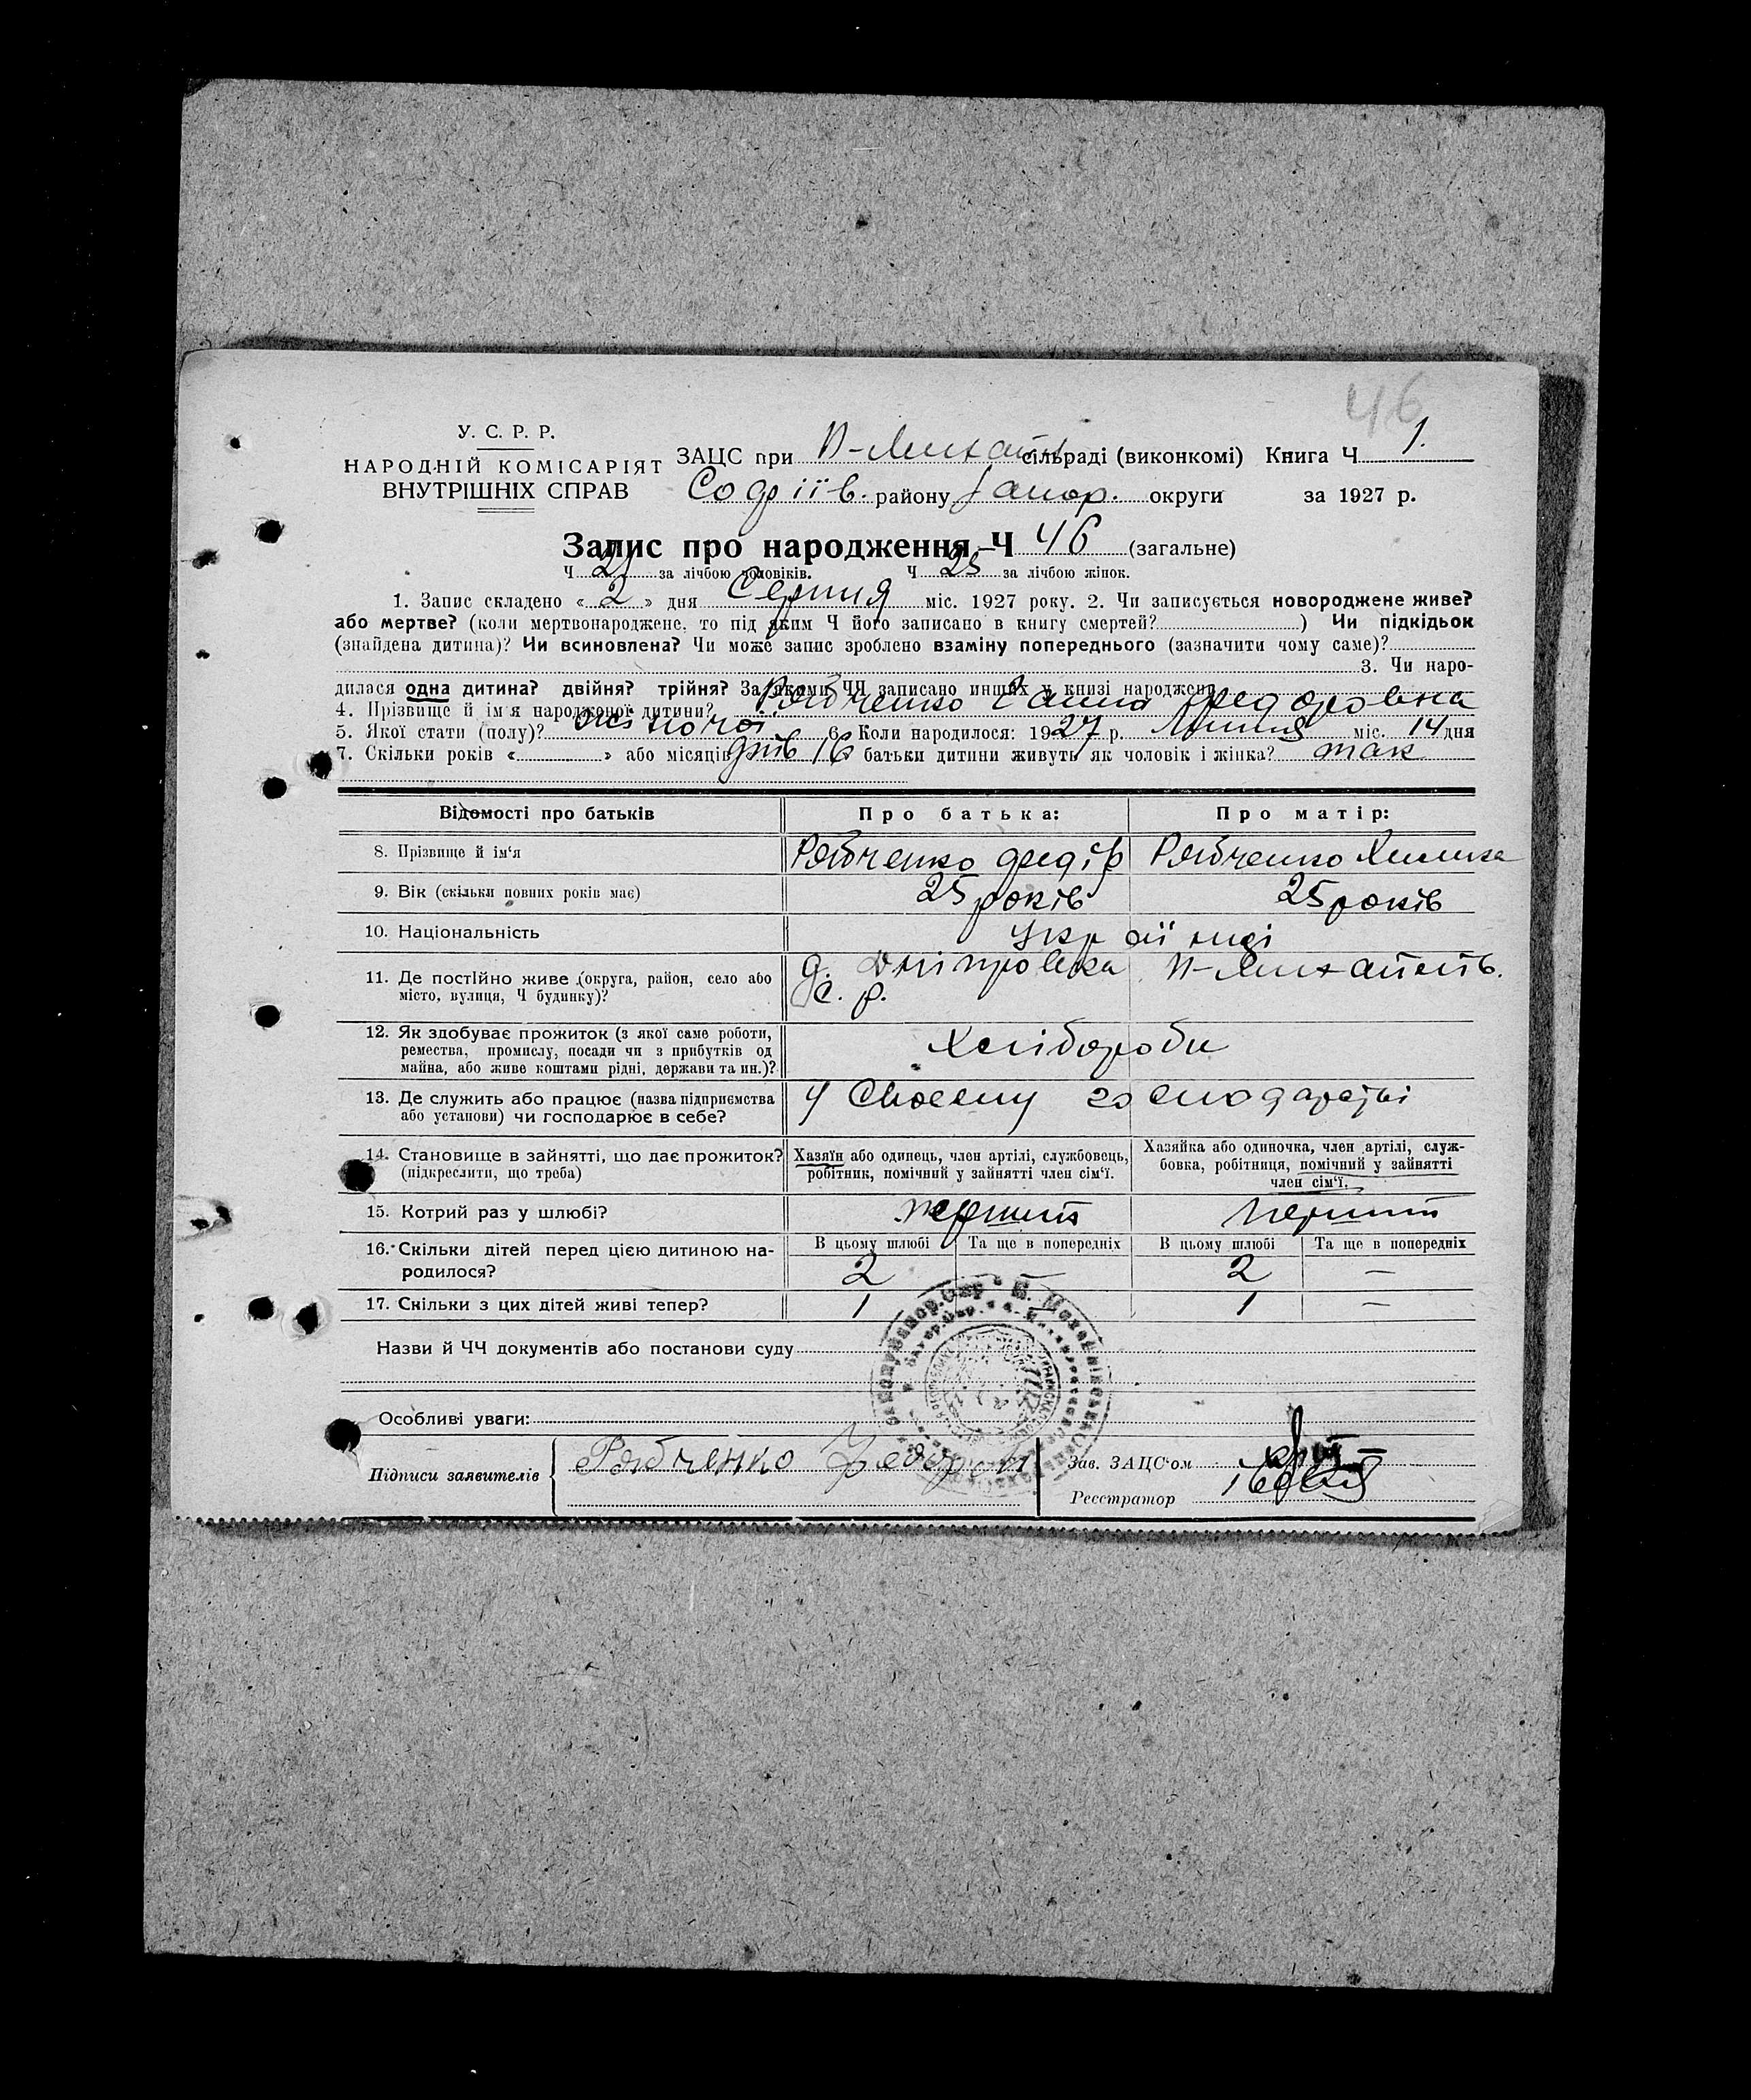 46
У. С. Р. Р.
НАРОДНІЙ КОМІСАРІЯТ
ВНУТРІШНІХ СПРАВ
ЗАЦС при Н-Михайл сільраді (виконкомі) Книга Ч 1.
Софіїв. району Запор. округи за 1927 р.
Запис про народження Ч 46 (загальне)
Ч 21 за лічбою чоловіків. Ч 25 за лічбою жінок.
1. Запис складено «2» дня Серпня міс. 1927 року. 2. Чи записується новороджене живе?
або мертве? (коли мертвонароджене, то під яким Ч його записано в книгу смертей? ) Чи підкідьок
(знайдена дитина)? Чи всиновлена? Чи може запис зроблено взаміну попереднього (зазначити чому саме)?
3. Чи наро-
дилася одна дитина? двійня? трійня? За якими ЧЧ записано инших у книзі народжень
4. Прізвище й ім'я народженої дитини? Рябченко Ганна Федоровна
5. Якої стати (полу)? жіночої 6. Коли народилося: 1927 р. Липня міс. 14 дня
7. Скільки років « » або місяців днів 16 батьки дитини живуть як чоловік і жінка? так
Відомості про батьків Про батька: Про матір:
8. Прізвище й ім'я Рябченко Федір Рябченко
9. Вік (скільки повних років має) 25 років 25 років
10. Національність Українці
11. Де постійно живе (округа, район, село або
місто, вулиця, Ч будинку)? Дніпровка Н-Михайлів.
с. р.
12. Як здобуває прожиток (з якої саме роботи,
ремества, промислу, посади чи з прибутків од
майна, або живе коштами рідні, держави та ин.)? Хлібороби
13. Де служить або працює (назва підприємства
або установи) чи господарює в себе? У своєму господарстві
14. Становище в зайнятті, що дає прожиток?
(підкреслити, що треба)
Хазяїн або одинець, член артілі, службовець,
робітник, помічний у зайнятті член сім'ї.
Хазяйка або одиночка, член артілі, служ-
бовка, робітниця, помічний у зайнятті
член сім'ї.
15. Котрий раз у шлюбі? перший перший
16. Скільки дітей перед цією дитиною на-
родилося?
В цьому шлюбі Та ще в попередніх В цьому шлюбі Та ще в попередніх
2 — 2 —
17. Скільки з цих дітей живі тепер? 1 — 1 —
Назви й ЧЧ документів або постанови суду
Особливі уваги:
Підписи заявителів Рябченко Федор
Зав. ЗАЦС'ом
Реєстратор